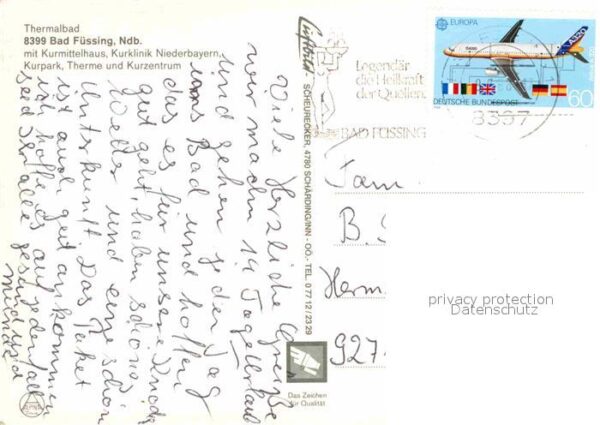 Thermalbad
8399 Bad Füssing, Ndb.
mit Kurmittelhaus, Kurklinik Niederbayern,
Kurpark, Therme und Kurzentrum
Viele Herzliche Grüße
wir machen 14 Tage Urlaub
und gehen jeder Tag
ins Bad und hoffen
das es für unsere
gut geht, haben schönes
Wetter und eine schön
Unterkunft Das Paket
ist auch gut ankommen
ich hoffe das auf jedenfall
seid Ihr alles gesund
Luftbild
SCHEURECKER, 4780 SCHÄRDING/INN - OÖ. - TEL. 0 77 12 / 23 29
Das Zeichen
für Qualität
Legendär
die Heilkraft
der Quellen.
BAD FÜSSING
8397
EUROPA
A320
DEUTSCHE BUNDESPOST
60
Fam.
B.
Herm
927
privacy protection
Datenschutz